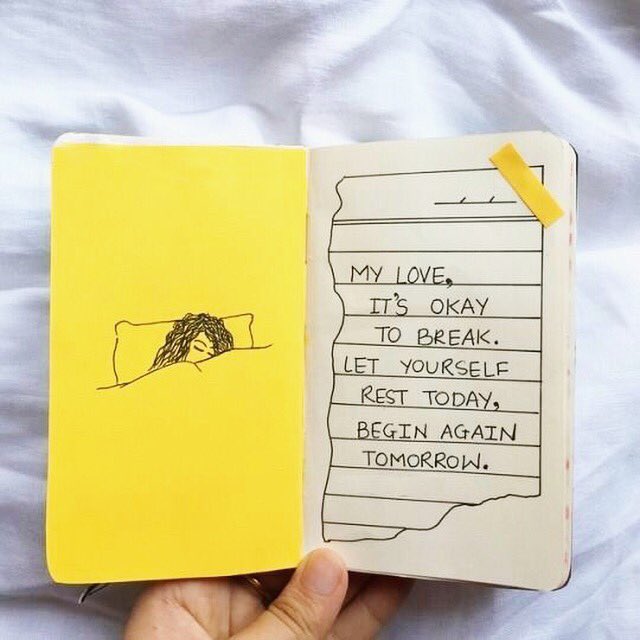 MY LOVE,
IT'S OKAY
TO BREAK.
LET YOURSELF
REST TODAY,
BEGIN AGAIN
TOMORROW.